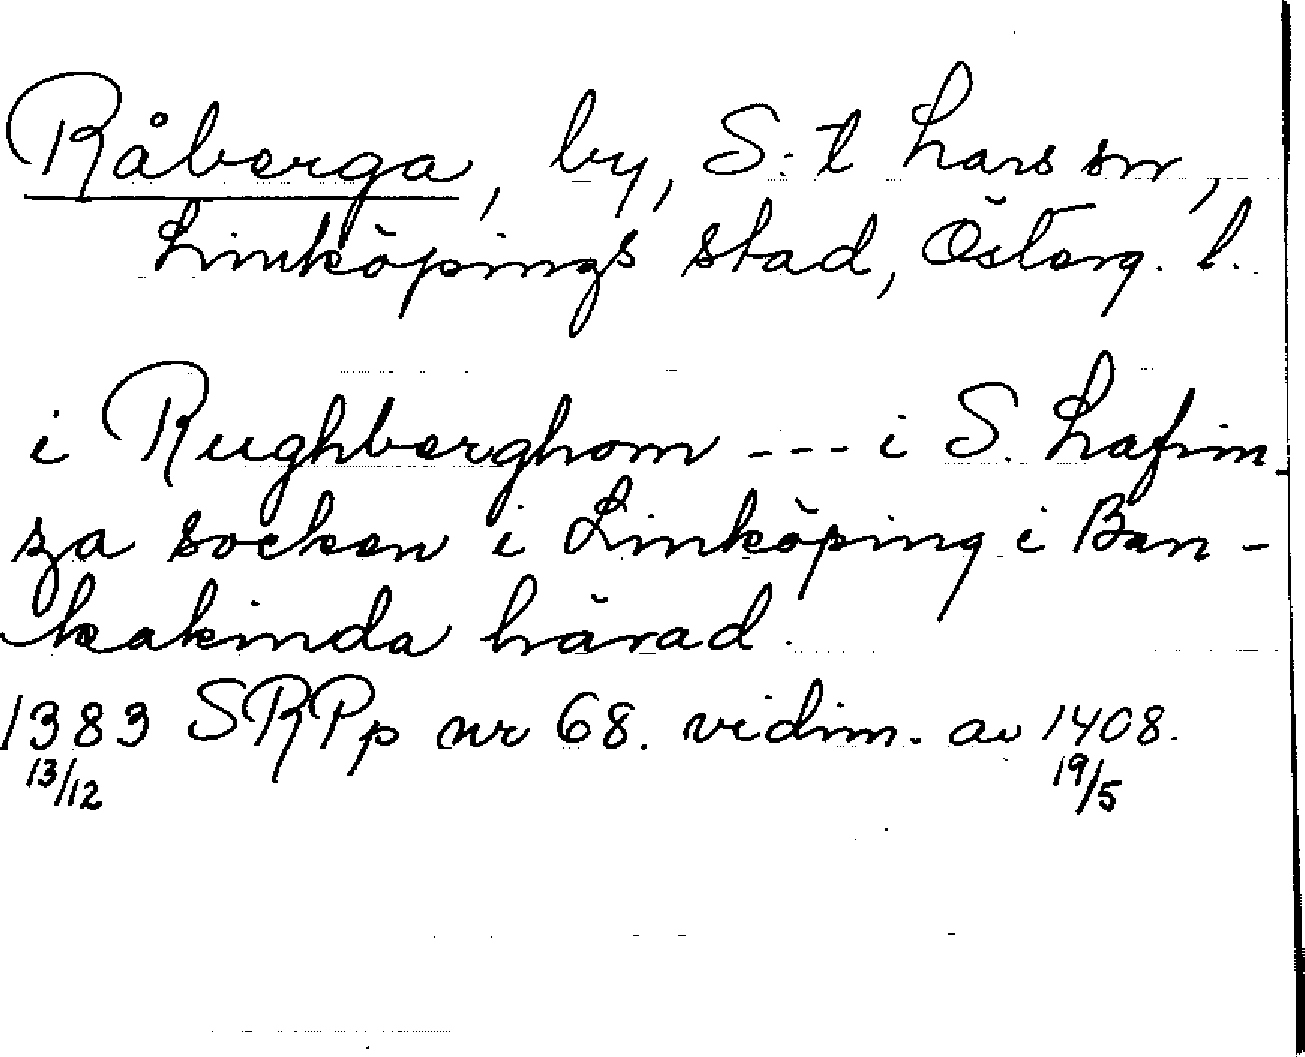 Råberga, by, S:t Lars sn,
Linköpings stad, Österg. l.
i Rughberghom --- i S. Lafrin-
za socken i Linköping i Ban-
kakinda härad.
1383 SRPp nr 68. vidim. av 1408.
13/12 19/5